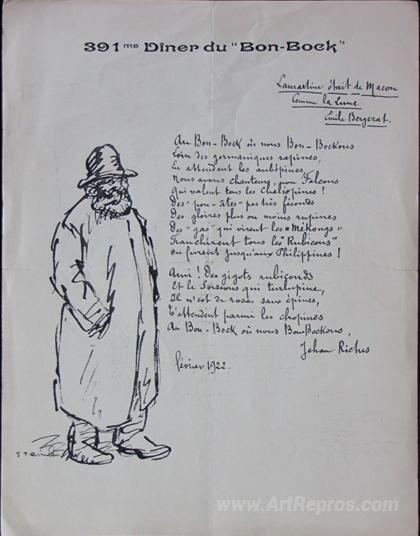 391me Dîner du "Bon-Bock"
Lamartine était de Macon
Comme la Lune
Emile Bergerat.
Au Bon-Bock où nous Bon-Bockons
Loin des germaniques rapines,
En attendant les aubépines,
Nous avons chanteurs pour Falcons
Qui valent tous les Chaliapines !
Des "pou-ètes" pas très féconds
Des gloires plus ou moins rupines
Des "gas" qui virent les «Mékongs»
Franchirent tous les "Rubicons"
Ou furent jusqu'aux Philippines !
Ami ! Des gigots rubiconds
Et le Soissons qui turlupine,
Il n'est de roses sans épines,
T'attendent parmi les chopines
Au Bon-Bock où nous Bon-Bockons.
Jehan Rictus
février 1922.
www.ArtRepros.com